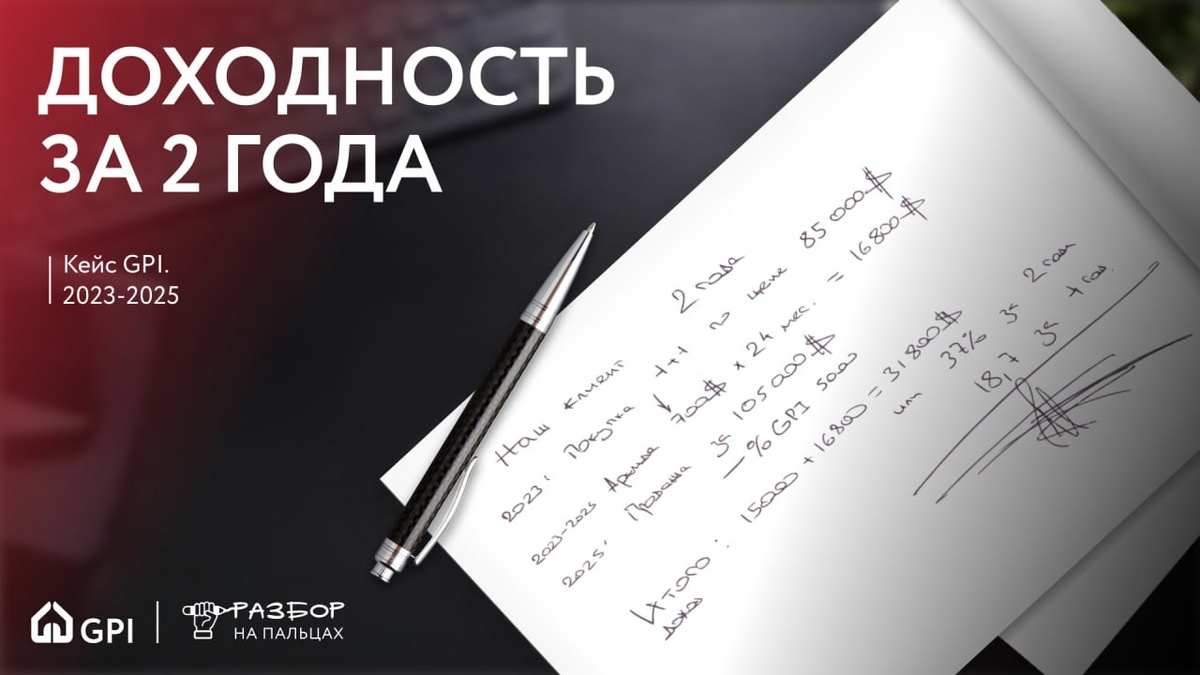 ДОХОДНОСТЬ
ЗА 2 ГОДА
Кейс GPI.
2023-2025
Наш клиент 2 года
2023: Покупка 1+1 по цене 85 000$
2023-2025 Аренда 700$ x 24 мес. = 16 800$
2025: Продажа за 105 000$
- % GPI 5000
Итого: 15000 + 16800 = 31 800$
доход
или 37% за 2 года
18,7 за 1 год.
GPI
РАЗБОР
НА ПАЛЬЦАХ